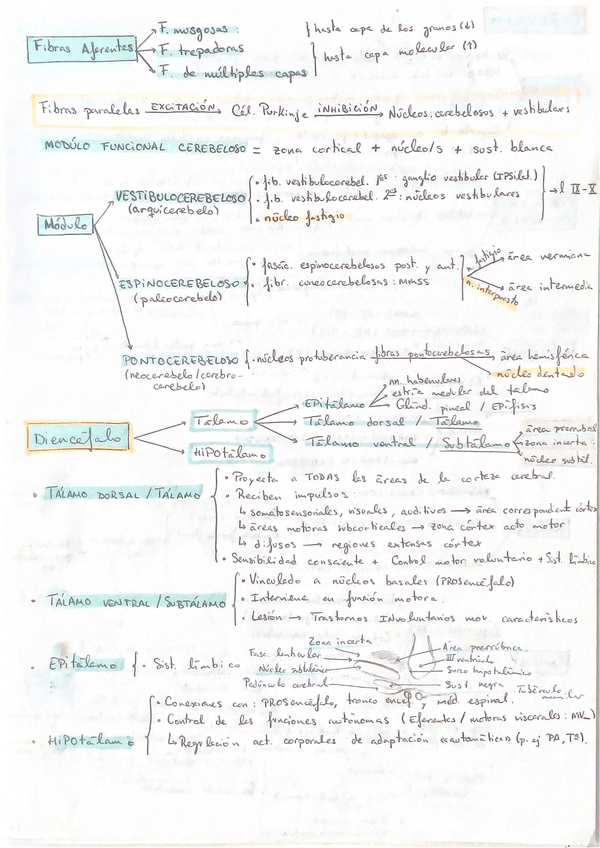 Fibras Aferentes
F. musgosas : } hasta capa de los granos (2)
F. trepadoras
F. de múltiples capas } hasta capa molecular (1)
Fibras paralelas EXCITACIÓN → Cél. Purkinje INHIBICIÓN → Núcleos: cerebelosos + vestibulares
MODÚLO FUNCIONAL CEREBELOSO = zona cortical + núcleo/s + sust. blanca
Módulo
VESTIBULOCEREBELOSO
(arquicerebelo)
• fib. vestibulocerebel. 1ªs : ganglio vestibular (IPSilat.)
• f.b. vestibulocerebel. 2ªs : núcleos vestibulares
• núcleo fastigio
→ l IX-X
ESPINOCEREBELOSO
(paleocerebelo)
• fascíc. espinocerebelosos post. y ant.
• fibr. cuneocerebelosas : MMSS
n. fastigio → área vermiana
n. interpuesto → área intermedia
PONTOCEREBELOSO
(neocerebelo/cerebro-
cerebelo)
• núcleos protuberancia fibras pontocerebelosas → área hemisférica
núcleo dentado
Diencéfalo
Tálamo
HiPOtálamo
EPitálamo
n. habenulares
estría medular del tálamo
Gland. pineal / EPífisis
Tálamo dorsal / Tálamo
Tálamo ventral / Subtálamo
área prerrubral
zona incerta
núcleo subtál.
• TÁLAMO DORSAL / TÁLAMO
• Proyecta a TODAS las áreas de la corteza cerebral.
• Reciben impulsos:
↳ somatosensoriales, visuales, auditivos → área correspondiente córtex
↳ áreas motoras subcorticales → zona córtex acto motor
↳ difusos → regiones extensas córtex
• Sensibilidad consciente + Control motor voluntario + Sist. límbico
• TÁLAMO VENTRAL / SUBTÁLAMO
• Vinculado a núcleos basales (PROSencéfalo)
• Interviene en función motora.
• Lesión → Trastornos INvoluntarios mov. característicos
• EPitálamo { • Sist. límbico
Zona incerta
Fasc. lenticular
Núcleo subtálmico
Pedúnculo cerebral
Área prerrúbrica
III ventrículo
Surco hipotalámico
Sust. negra
Tubérculo mamilar
• HiPOtálamo
• Conexiones con : PROSencéfalo, tronco encef. y méd. espinal.
• Control de las funciones autónomas (Eferentes / motoras viscerales:
↳ Regulación act. corporales de adaptación «automáticas» (p. ej PA, Tª).